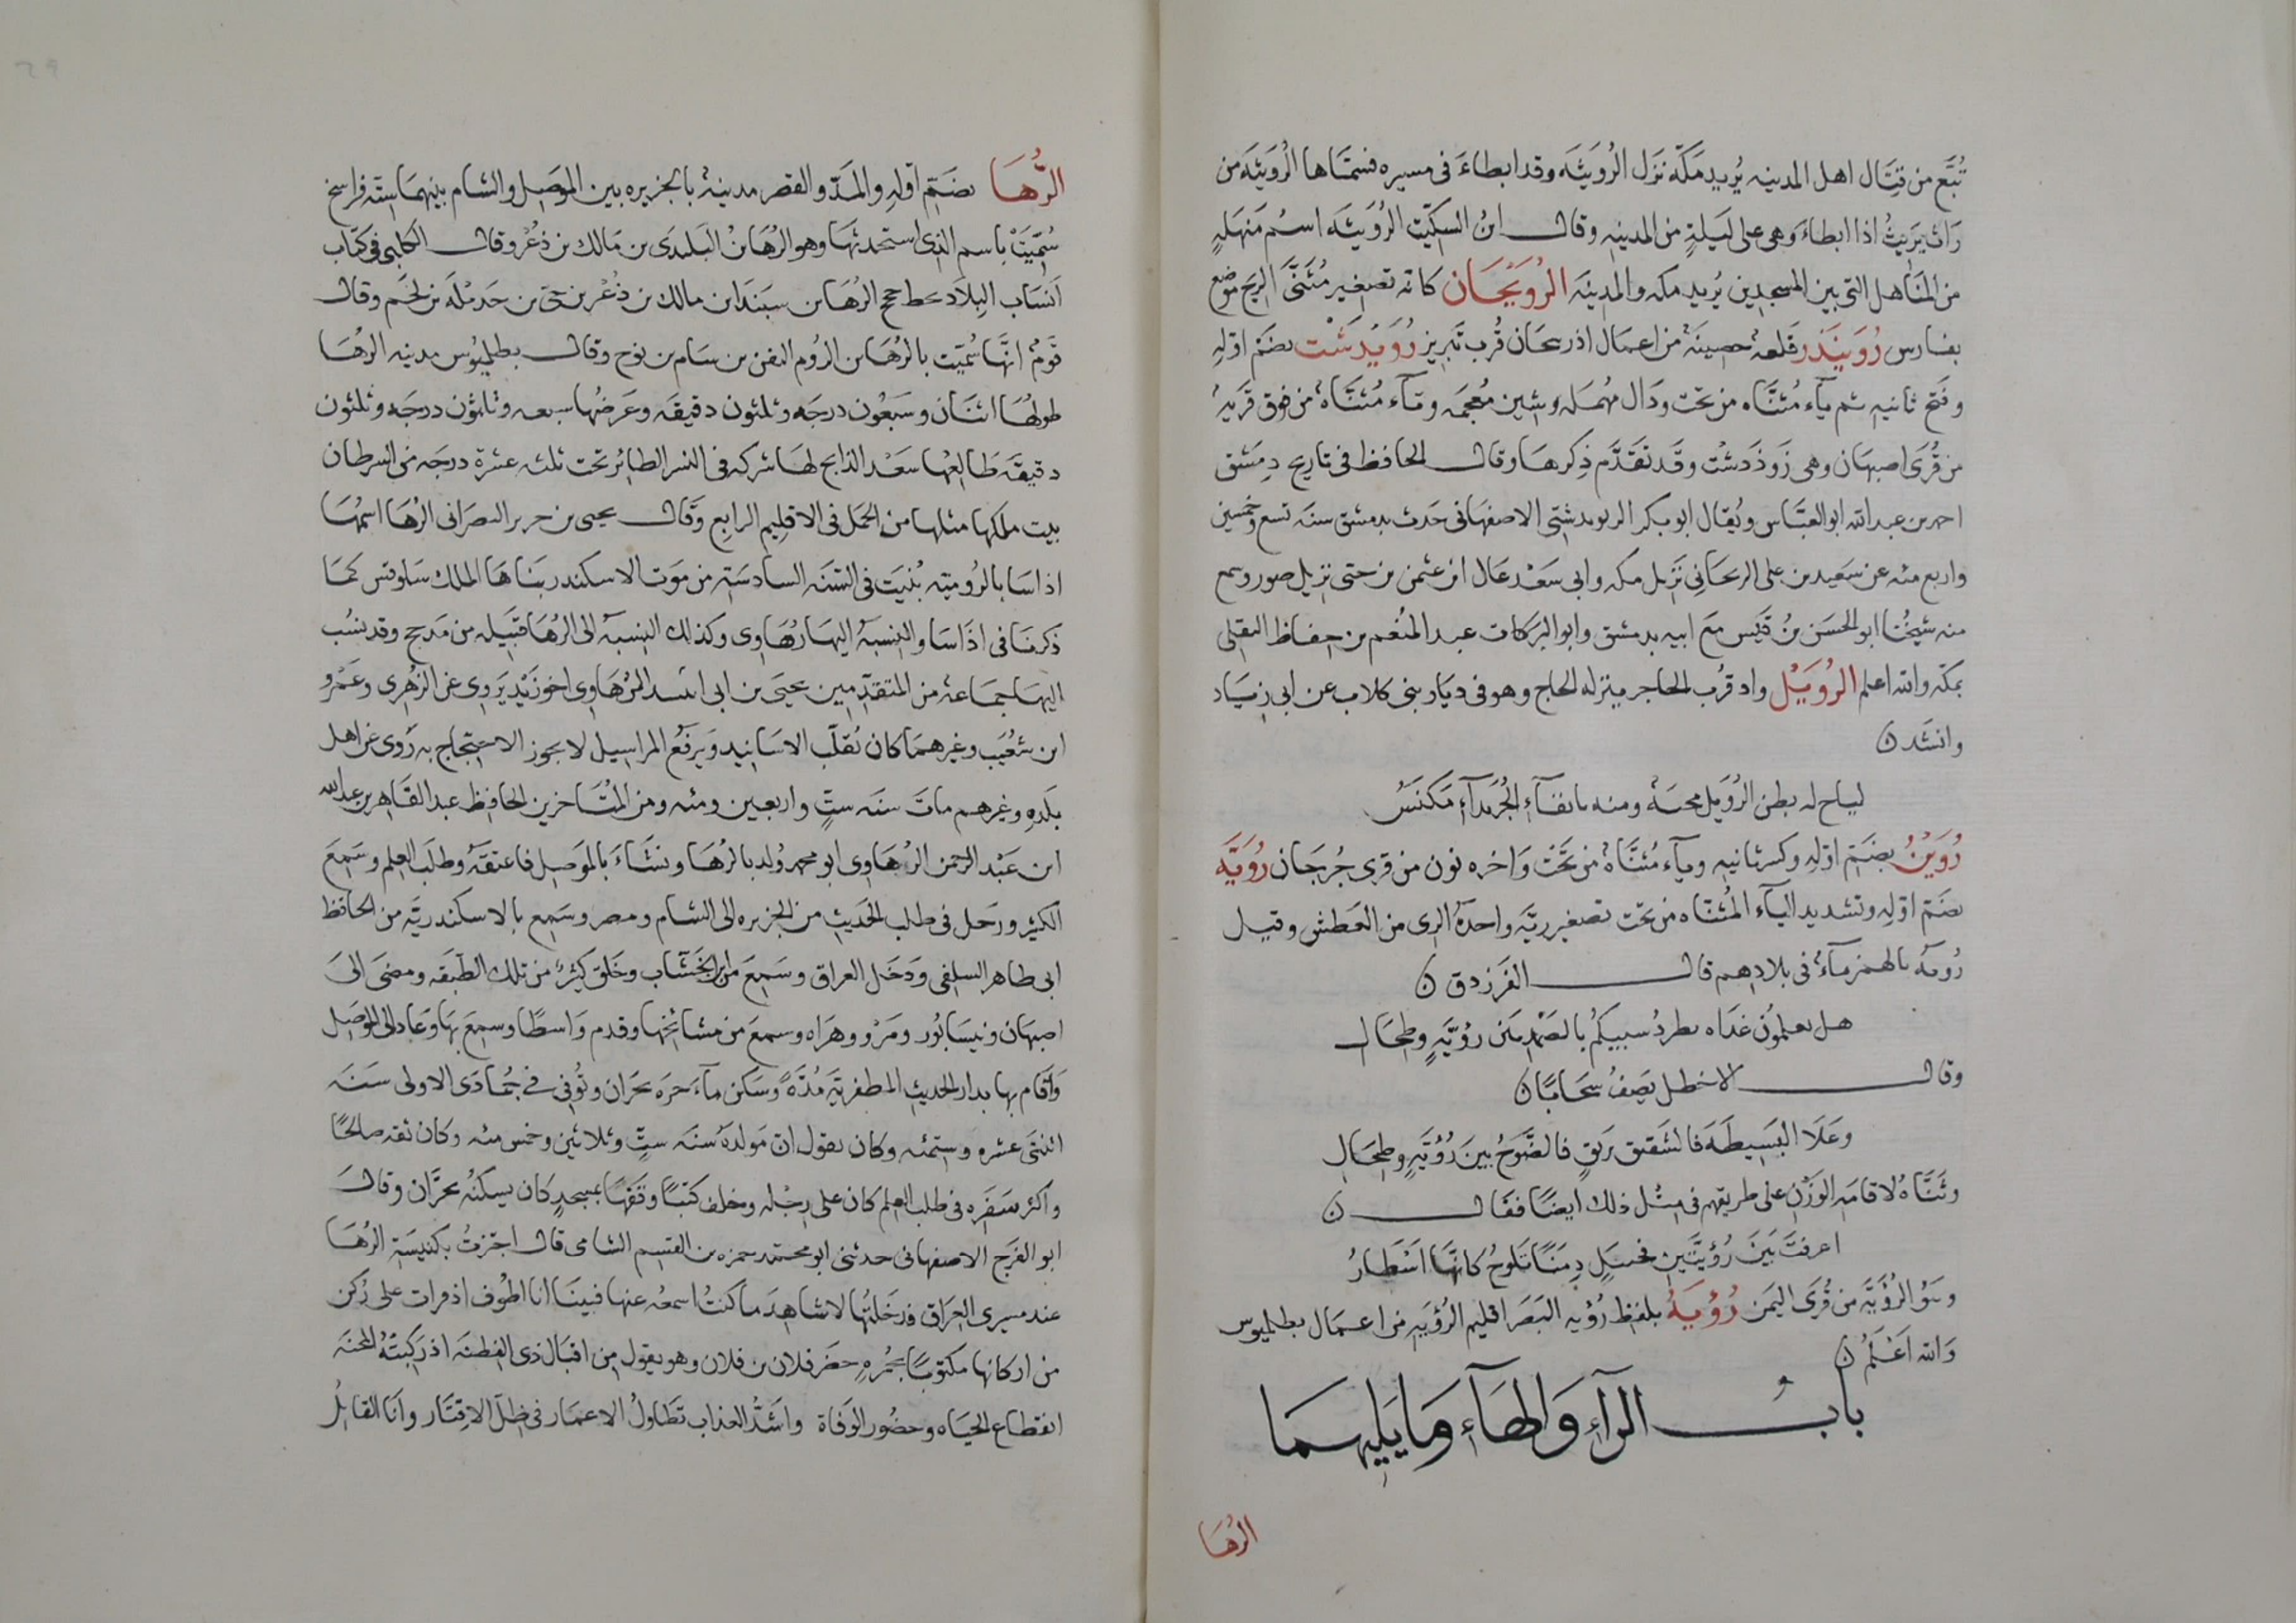 تُبَّع من قِتَال اهل المدينه يُريد مَكّة نَزَل الرُوَيثَه وقد ابطاءَ فى مسيره فسَمّاها الرُوَيثَه من
رَاث يَرِيثُ اذا ابطاءَ وهى على لَيلةٍ من المدينه وقال ابنُ السِكّيت الرُوَيثَه اسمُ مَنهَلةٍ
من المَناهل التى بين المسجدين يُريد مكه والمدينَه الرُوَيْحَان كانه تصغير مُثَنَّى الرِيح موضع
بفارس رُوَيَندز قلعةٌ حصينَةٌ من اعمال اذربيجان قُرب تبريز رُوَيْدَشْت بضَم اوّلهِ
وفَتح ثانيهِ ثم ياء مُثنّاه من تحت ودَال مُهمَله وشين مُعجَمَه وتآء مُثنَّاةٌ من فوق قَريهٌ
من قُرَى اصبَهَان وهى زَوذَدشْت وقَد تَقَدَّم ذِكرها وقال الحافظ فى تاريخ دِمَشق
احمد بن عبد الله ابو العبَّاس ويُقال ابو بكر الرويدشتى الاصفهَانى حَدث بدمشق سنَه تسع وخمسين
واربع مئه عن سَعيد بن على الريحَانى نَزيل مكه وابى سَعْد عَال ابن عثمن بن حتى نزيل صور وسمع
منه شيخُنَا ابو الحسَن بنُ قَيس مَعَ ابيه بدمشق وابو البَركات عبد المنعم بن حِفَاظ البقلى
بمكّه والله اعلم الرُوَيْل واد قُرب الحاجر ينزله الحاج وهو فى ديَار بنى كلاب عن ابى زيَاد
وانشَد ن
لياح له بطن الرُوَيل مجنةٌ ومنه بانقاءِ الجُرَيداءِ مَكنَسُ
رُوَيْنُ بضَمّ اوّلهِ وكسر ثانيهِ وياء مُثنَّاةٌ من تحْت وَاخره نون من قرى جُرجَان رُوَيَّه
بضَمّ اوّلهِ وتشديد اليآء المُثنّاه من تحت تصغير ريَّه واحدةُ الرى من العَطش وقيل
رُويَه بالهمز مآءٌ فى بلادهم قال الفَرَزدق ن
هل تعلمُون غدَاه يطردُ سبيكُم بالصَمْدِ بَين رُوَيَّةٍ وطحَال
وقال الاخطل يَصِفُ سَحَابًا ن
وعَلا البَسِيطَه فالشَقِيق بَريّقٍ فالضَوْجُ بينَ رُوَيَّةٍ وطِحَالِ
وثَنَّاهُ لاقامَهِ الوَزْن على طريقهم فى مِثل ذلك ايضًا فقَال ن
اعرفتَ بَينَ رُؤيتَّين فحنبَلٍ دِمَنًا تَلوحُ كانَّها اَسْطَارُ
وبَنُو الرُؤيَّه من قُرَى اليَمن رُؤيَةُ بلفظ رُؤيه البَصَر اقليم الرُؤيَهِ من اعمال بطليوس
وَالله اَعْلَمُ ن
بابُ الرآءِ وَالهَآءِ وَمَا يَليهمَا
الرُهَا
الرُّهَا بضَمّ اوّلهِ والمَدّ والقصر مدينةٌ بالجزيره بين المَوصِل والشام بينهمَا ستّه فراسخ
سُمِّيَتْ باسم الذى استحدثهَا وهو الرُهَا بنُ البَلَندَى بن مَالك بن ذُعْر وقال الكلبى فى كتَاب
اَنسَاب البِلاد بخط حجح الرُهَا بن سبَندَ ابن مالك بن ذُعْر بن حى بن جَديْلَه بن لخَم وقال
قَومٌ انّهَا سُمّيَت بالرُهَا بن الرُوم البفن بن سَام بن نوح وقال بطليُوس مدينه الرهَا
طولهَا اثنَان وسَبعُون درجَه وثلثون دقيقَه وعَرضُها سبعه وثلثون درجَه وثلثون
دقيقَه طَالِعُها سَعْد الذابح لهَا شركه فى النسر الطائر تحت ثلثه عشرة درجَه من السرطان
بيت ملكها مثلها من الحَمل فى الاقليم الرابع وَقال يحيى بن جرير النصَرانى الرُهَا اسمُهَا
اذاسَا بالرُوميّه بُنيَت فى السَنَه السادسَةِ من مَوت الاسكندر بنَاهَا الملك سَلوقس كمَا
ذكرنَا فى اذَاسَا والنِسبَهُ اليهَا رُهَاوى وكذلك النسبَه الى الرُهَا قبَيله من مَذحج وقد نسُب
اليهَا جمَاعه من المتقدِّمين يحيَى بن ابى انَيسه الرُهَاوى اخو زَيْد يَروى عن الزهرى وعَمْرو
ابن شعَيب وغيرهمَا كان يُقلّب الاسَانيد وَيرفعُ المراسيل لا يجوز الاحتجاج به رَوى عن اهل
بَلَدِهِ وغيرهم ماتَ سنَه ستٍّ واربعين ومئه ومن المتَاخرين الحافظ عبد القَاهر بن عبد الله
ابن عَبْد الرحمن الرُهَاوى ابو محمد وُلد بالرُهَا ونشَاءَ بالمَوصِل فاعتقَهُ وطلَب العِلم وسَمِعَ
الكثير ورَحل فى طلب الحَديث من الجزيره الى الشام ومصر وسَمع بالاسكندريَّه من الحَافظ
ابى طاهر السلفى وَدَخَل العراق وسَمِعَ من ابن الخَشّاب وخَلق كثيرٍ من تلك الطَبَقه ومضى الىَ
اصبَهان ونيسَابُور ومَرْو وهَرَاه وسمعَ من مشائخهَا وقدم وَاسطًا وسمعَ بهَا وَعَاد الى المَوصِل
وَاَقام بها بدار الحديثِ المظفريَّه مُدَّةً وسَكن بآخَرِه بحَران وتُوفى فى جُمَادَى الاولى سَنَه
اثنتَى عشره وستمئه وكان يقول انّ مَولدهُ سنَه ستٍّ وثلاثين وخمس مئه وكان ثقه صالحًا
واكثر سَفَرِه فى طلب العلم كان على رِجْله وخلف كتبًا وقفهَا بمسجدٍ كان يسكنُه بحَرَّان وقالَ
ابو الفَرَج الاصفهانى حدثنى ابو محمّد حمزه بن القسم الشامى قال اجتزتُ بكنيسَةِ الرُهَا
عند مسيرى العرَاق فدَخَلتُهَا لاشاهِدَ ما كنتُ اسمعُه عنها فبينَا انا اطوف اذ قرات على رُكن
من اركانها مكتوبًا بحُمرهٍ حضَر فلان بن فلان وهو يقول مِن اقبَال ذى الفطنَه اذ رَكِبَتْهُ المحنَه
انقطاع الحيَاه وحضُور الوَفاة واشَدُّ العذاب تطاولُ الاعمَار فى ظلّ الاقتَار وانَا القائِلُ